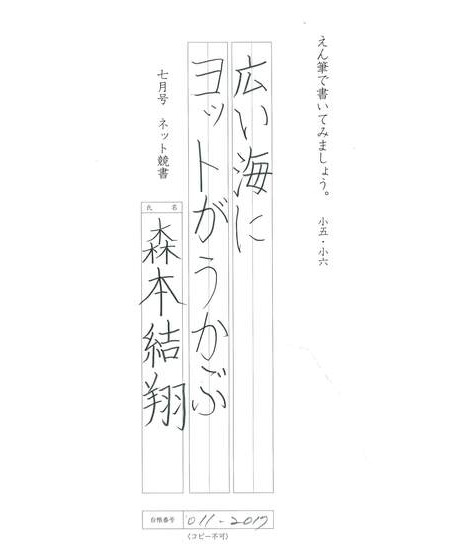 えん筆で書いてみましょう。 小五・小六
広い海に
ヨットがうかぶ
七月号 ネット競書
氏名
森本結翔
台帳番号 011-2017
(コピー不可)